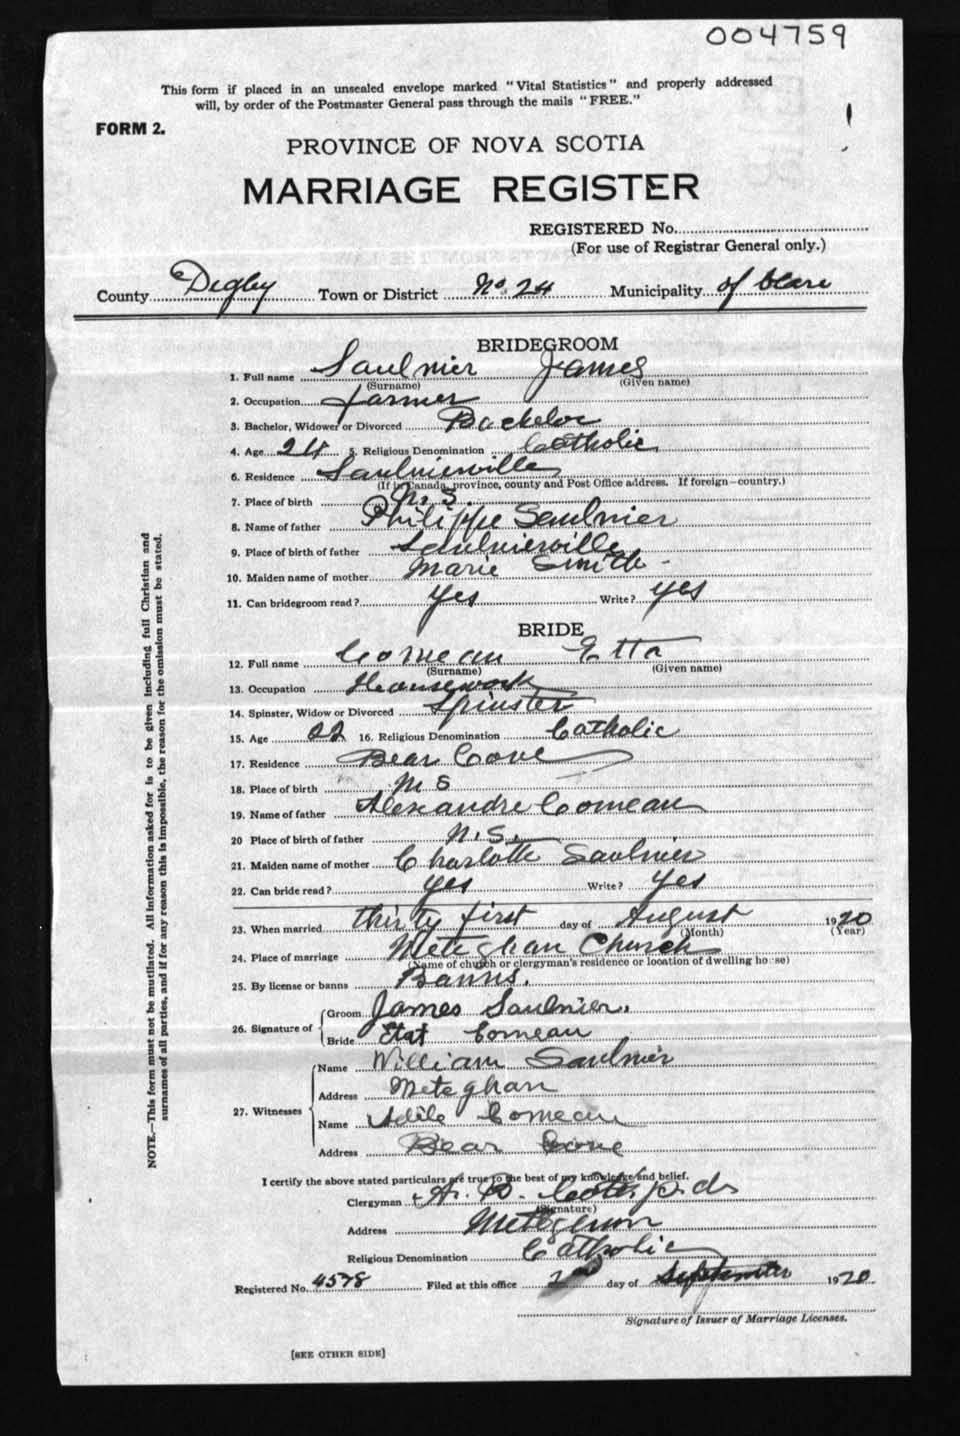 004759
This form if placed in an unsealed envelope marked "Vital Statistics" and properly addressed
will, by order of the Postmaster General pass through the mails "FREE."
FORM 2.
PROVINCE OF NOVA SCOTIA
MARRIAGE REGISTER
REGISTERED No.
(For use of Registrar General only.)
County Digby Town or District No. 24 Municipality of Clare
BRIDEGROOM
1. Full name Saulnier James
(Surname) (Given name)
2. Occupation farmer
3. Bachelor, Widower or Divorced Bachelor
4. Age 24 5. Religious Denomination Catholic
6. Residence Saulnierville
(If in Canada, province, county and Post Office address. If foreign—country.)
7. Place of birth N. S.
8. Name of father Philippe Saulnier
9. Place of birth of father Saulnierville
10. Maiden name of mother Marie Smith
11. Can bridegroom read? yes Write? yes
BRIDE
12. Full name Comeau Etta
(Surname) (Given name)
13. Occupation Housework
14. Spinster, Widow or Divorced Spinster
15. Age 22 16. Religious Denomination Catholic
17. Residence Bear Cove
18. Place of birth N S
19. Name of father Alexandre Comeau
20 Place of birth of father N. S.
21. Maiden name of mother Charlotte Saulnier
22. Can bride read? yes Write? yes
23. When married thirty first day of August 1920
(Month) (Year)
24. Place of marriage Meteghan Church
(Name of church or clergyman's residence or location of dwelling house)
25. By license or banns Banns.
26. Signature of
Groom James Saulnier.
Bride Etat Comeau
27. Witnesses
Name William Saulnier
Address Meteghan
Name Adèle Comeau
Address Bear Cove
I certify the above stated particulars are true to the best of my knowledge and belief.
Clergyman A. B. Côté p.d.
(Signature)
Address Meteghan
Religious Denomination Catholic
Registered No. 4578 Filed at this office 2nd day of September 1920
Signature of Issuer of Marriage Licenses.
[SEE OTHER SIDE]
NOTE.—This form must not be mutilated. All information asked for is to be given including full Christian and
surnames of all parties, and if for any reason this is impossible, the reason for the omission must be stated.